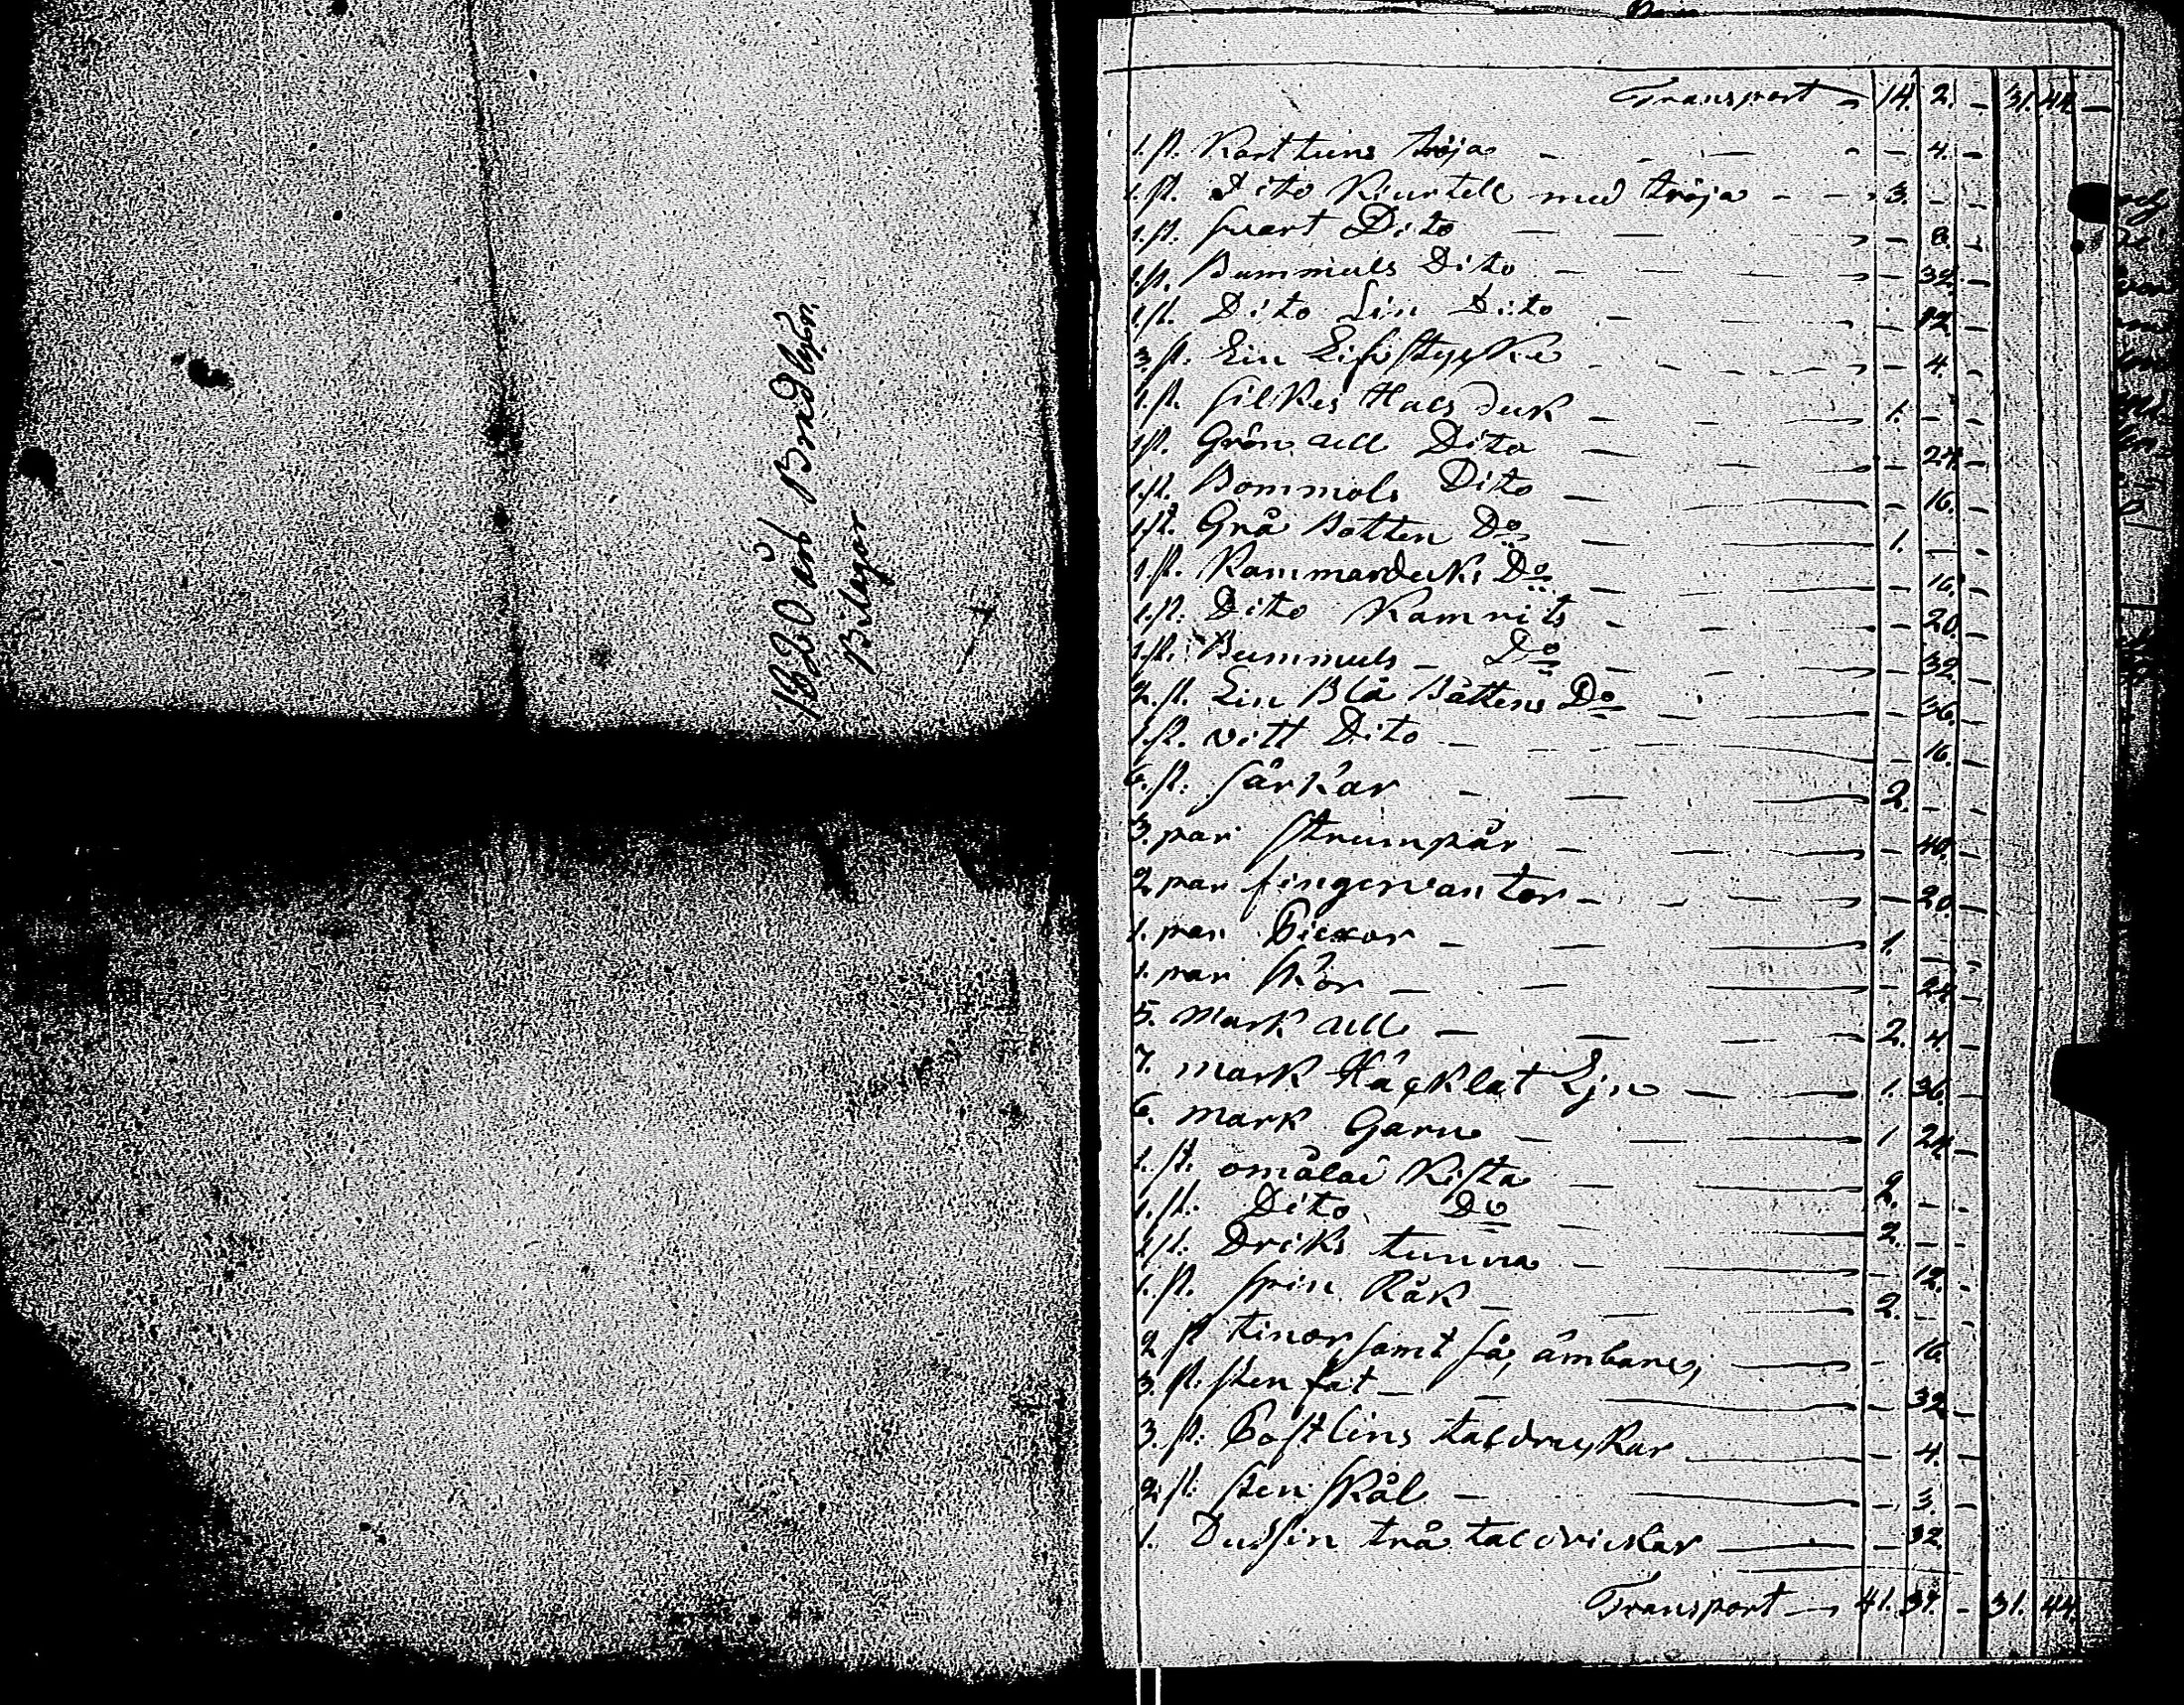 1820 års Brädlyen
Bilagor
Transport - 14. 2. - 31. 44 -
1. st. Kattuns tröja - - - - - 4. -
1. st. Dito Kiurtell med tröja - - 3. - -
1. st. svart Dito - - - - 8. -
1. st. Bummuls Dito - - - - 32. -
1. st. Dito Lin Dito - - - - 12. -
3. st. Lin Lifstyske - - - - 4. -
1. st. silkes Halsduk - - - 1. - -
1. st. Grön ull Dito - - - - 24. -
1. st. Bommols Dito - - - - 16. -
1. st. Grå Botten Do - - 1. - -
1. st. Kammarduks Do - - - - 16. -
1. st. Dito Kamrits - - - - 20. -
1. st. Bummuls - Do - - - - 32. -
2. st. Lin Blå Båttens Do - - - 36. -
1. st. vitt Dito - - - - 16. -
6. st. särkar - - - 2. - -
3. par strumpår - - - - 40. -
2. par fingervantor - - - - 20. -
1. par - - - 1. - -
1. par skor - - - - 24. -
5. mark ull - - - 2. 4. -
7. mark Häcklat Ljn - - 1. 36. -
6. mark Garn - - - 1. 24. -
1. st. omålad Kista - - 2. - -
1. st. Dito Do - - 2. - -
1. st. Driks tunna - - - 12. -
1. st. spin Råk - - - 2. - -
2 st tinor samt så, ämbare, - - 16.
3. st. sten fat - - - - 32 -
3. st. Postlins taldruskar - - 4. -
2. st. sten skål - - - 3. -
1. Dussin trä taldrickar - - 32.
Transport - 41. 37. - 31. 44.